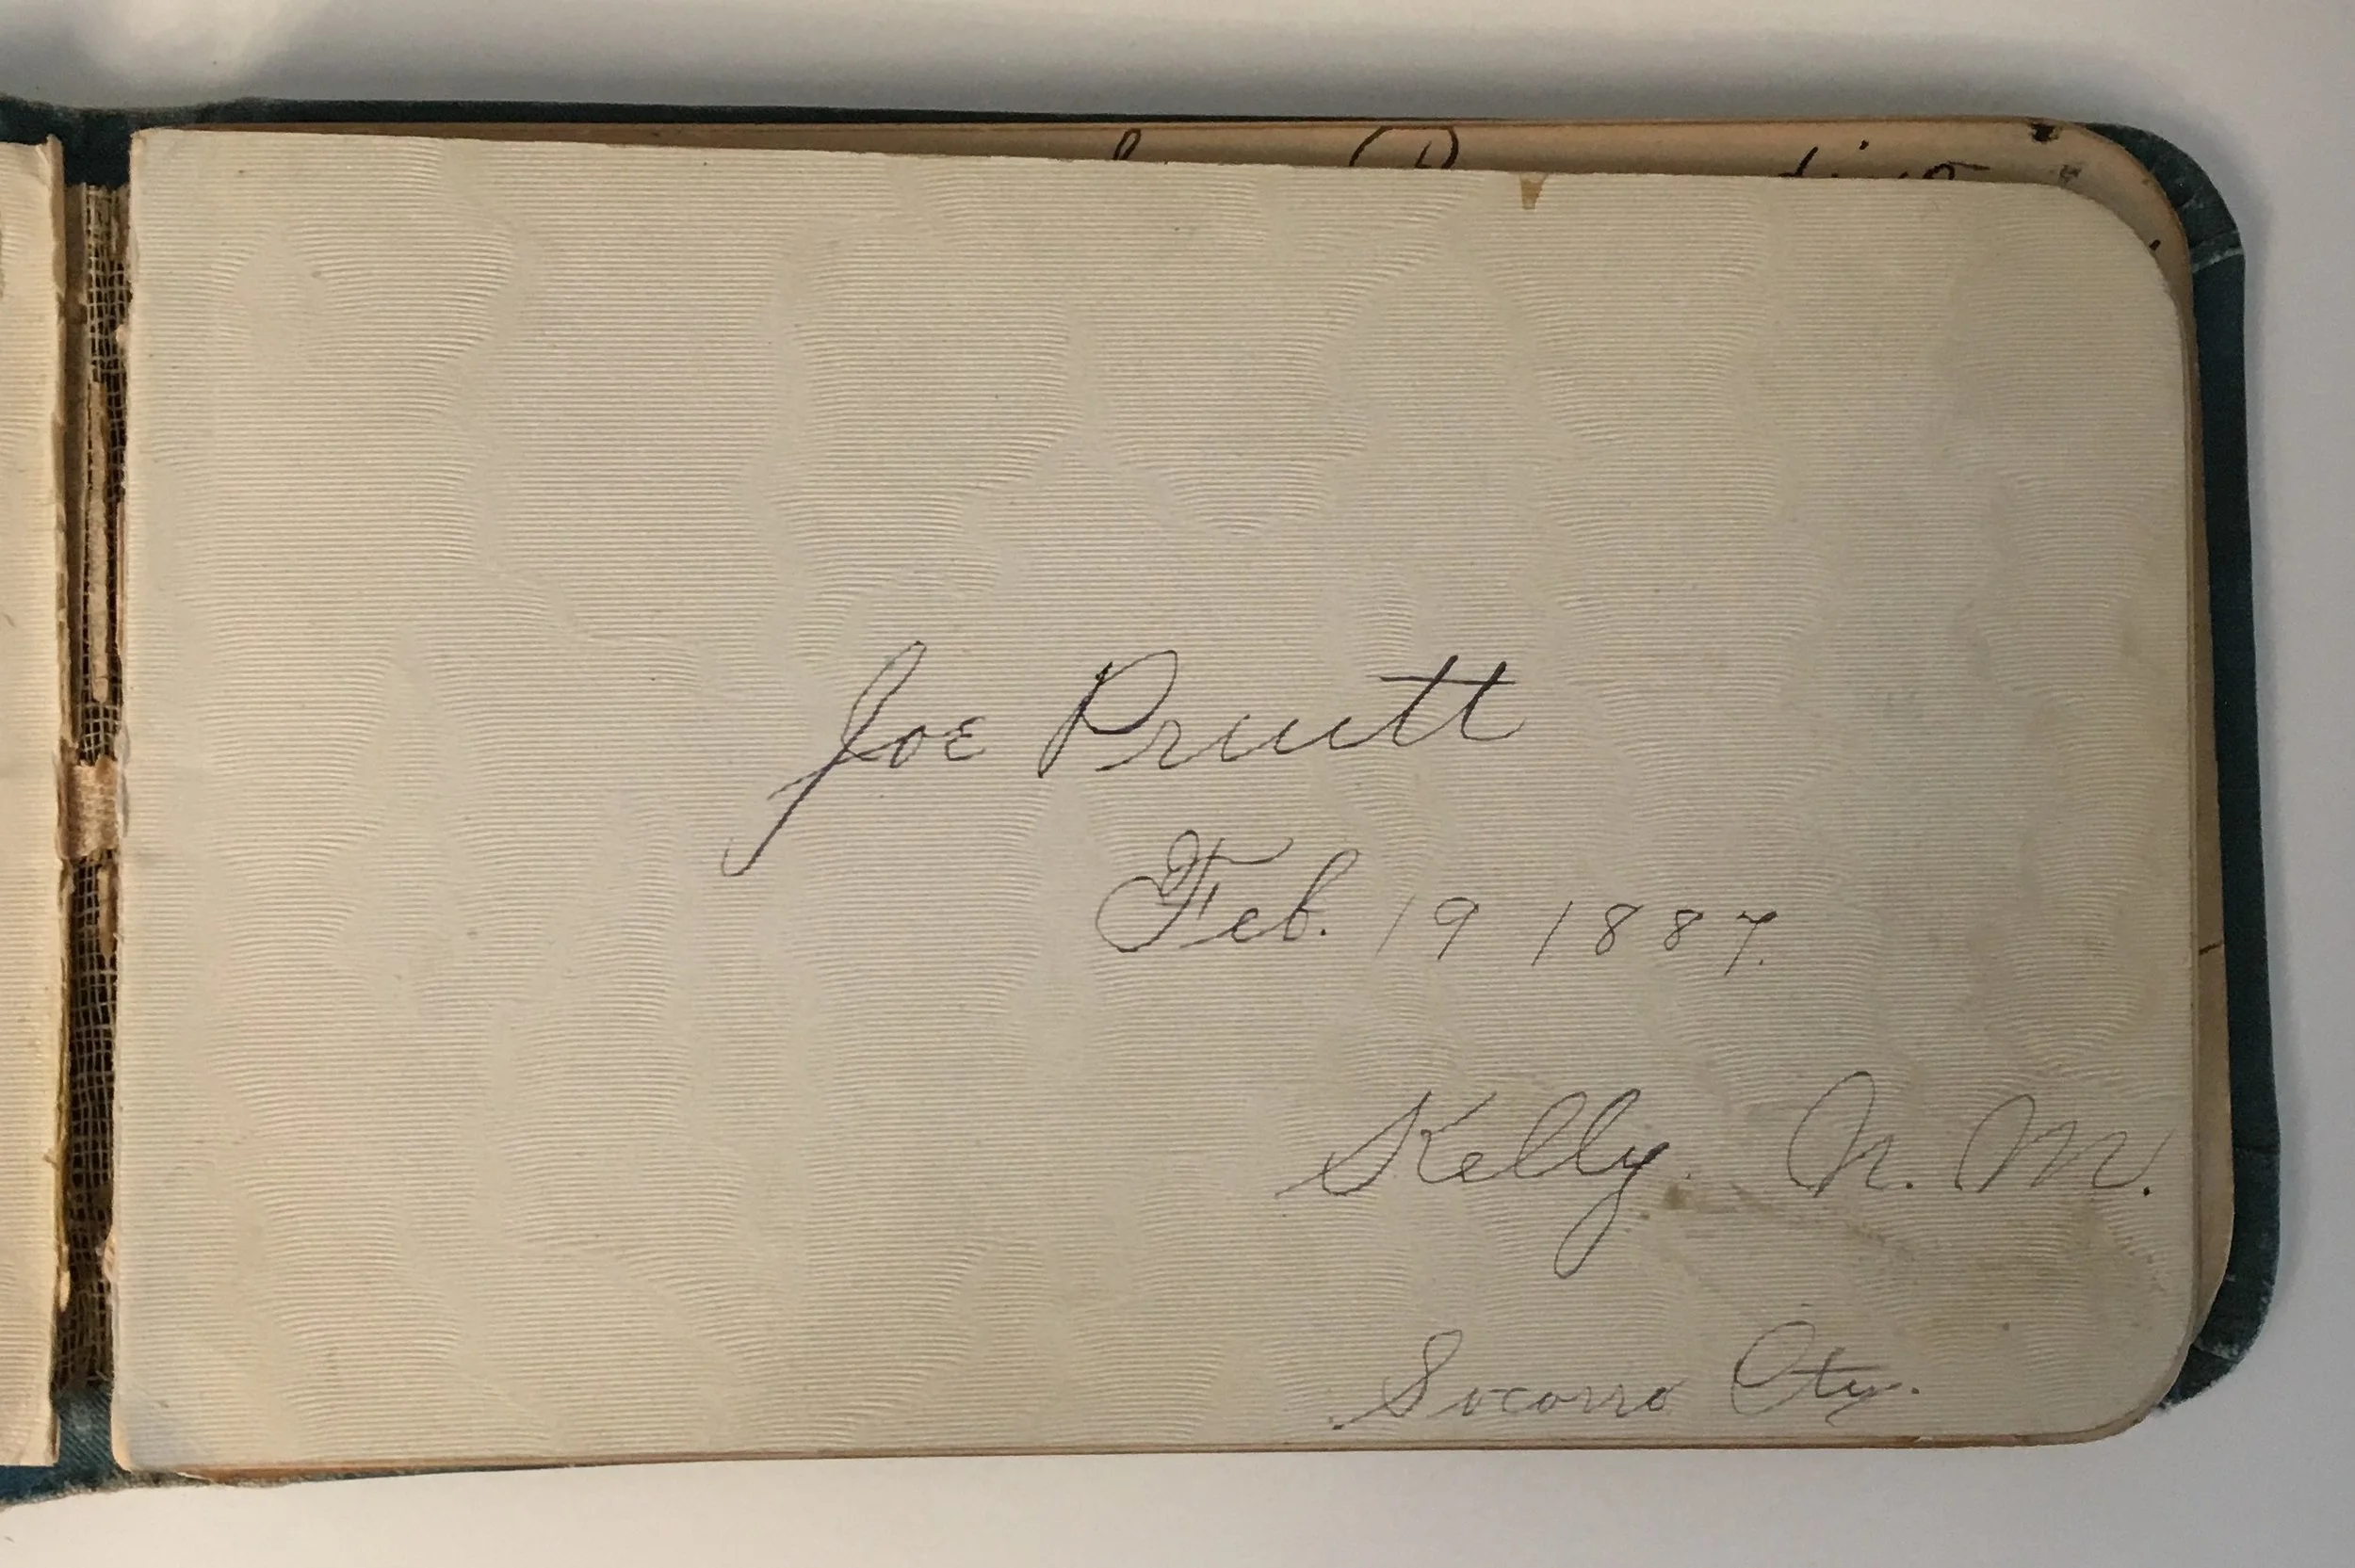 Joe Pruitt
Feb. 19 1887.
Kelly. N. M.
Socorro Cty.